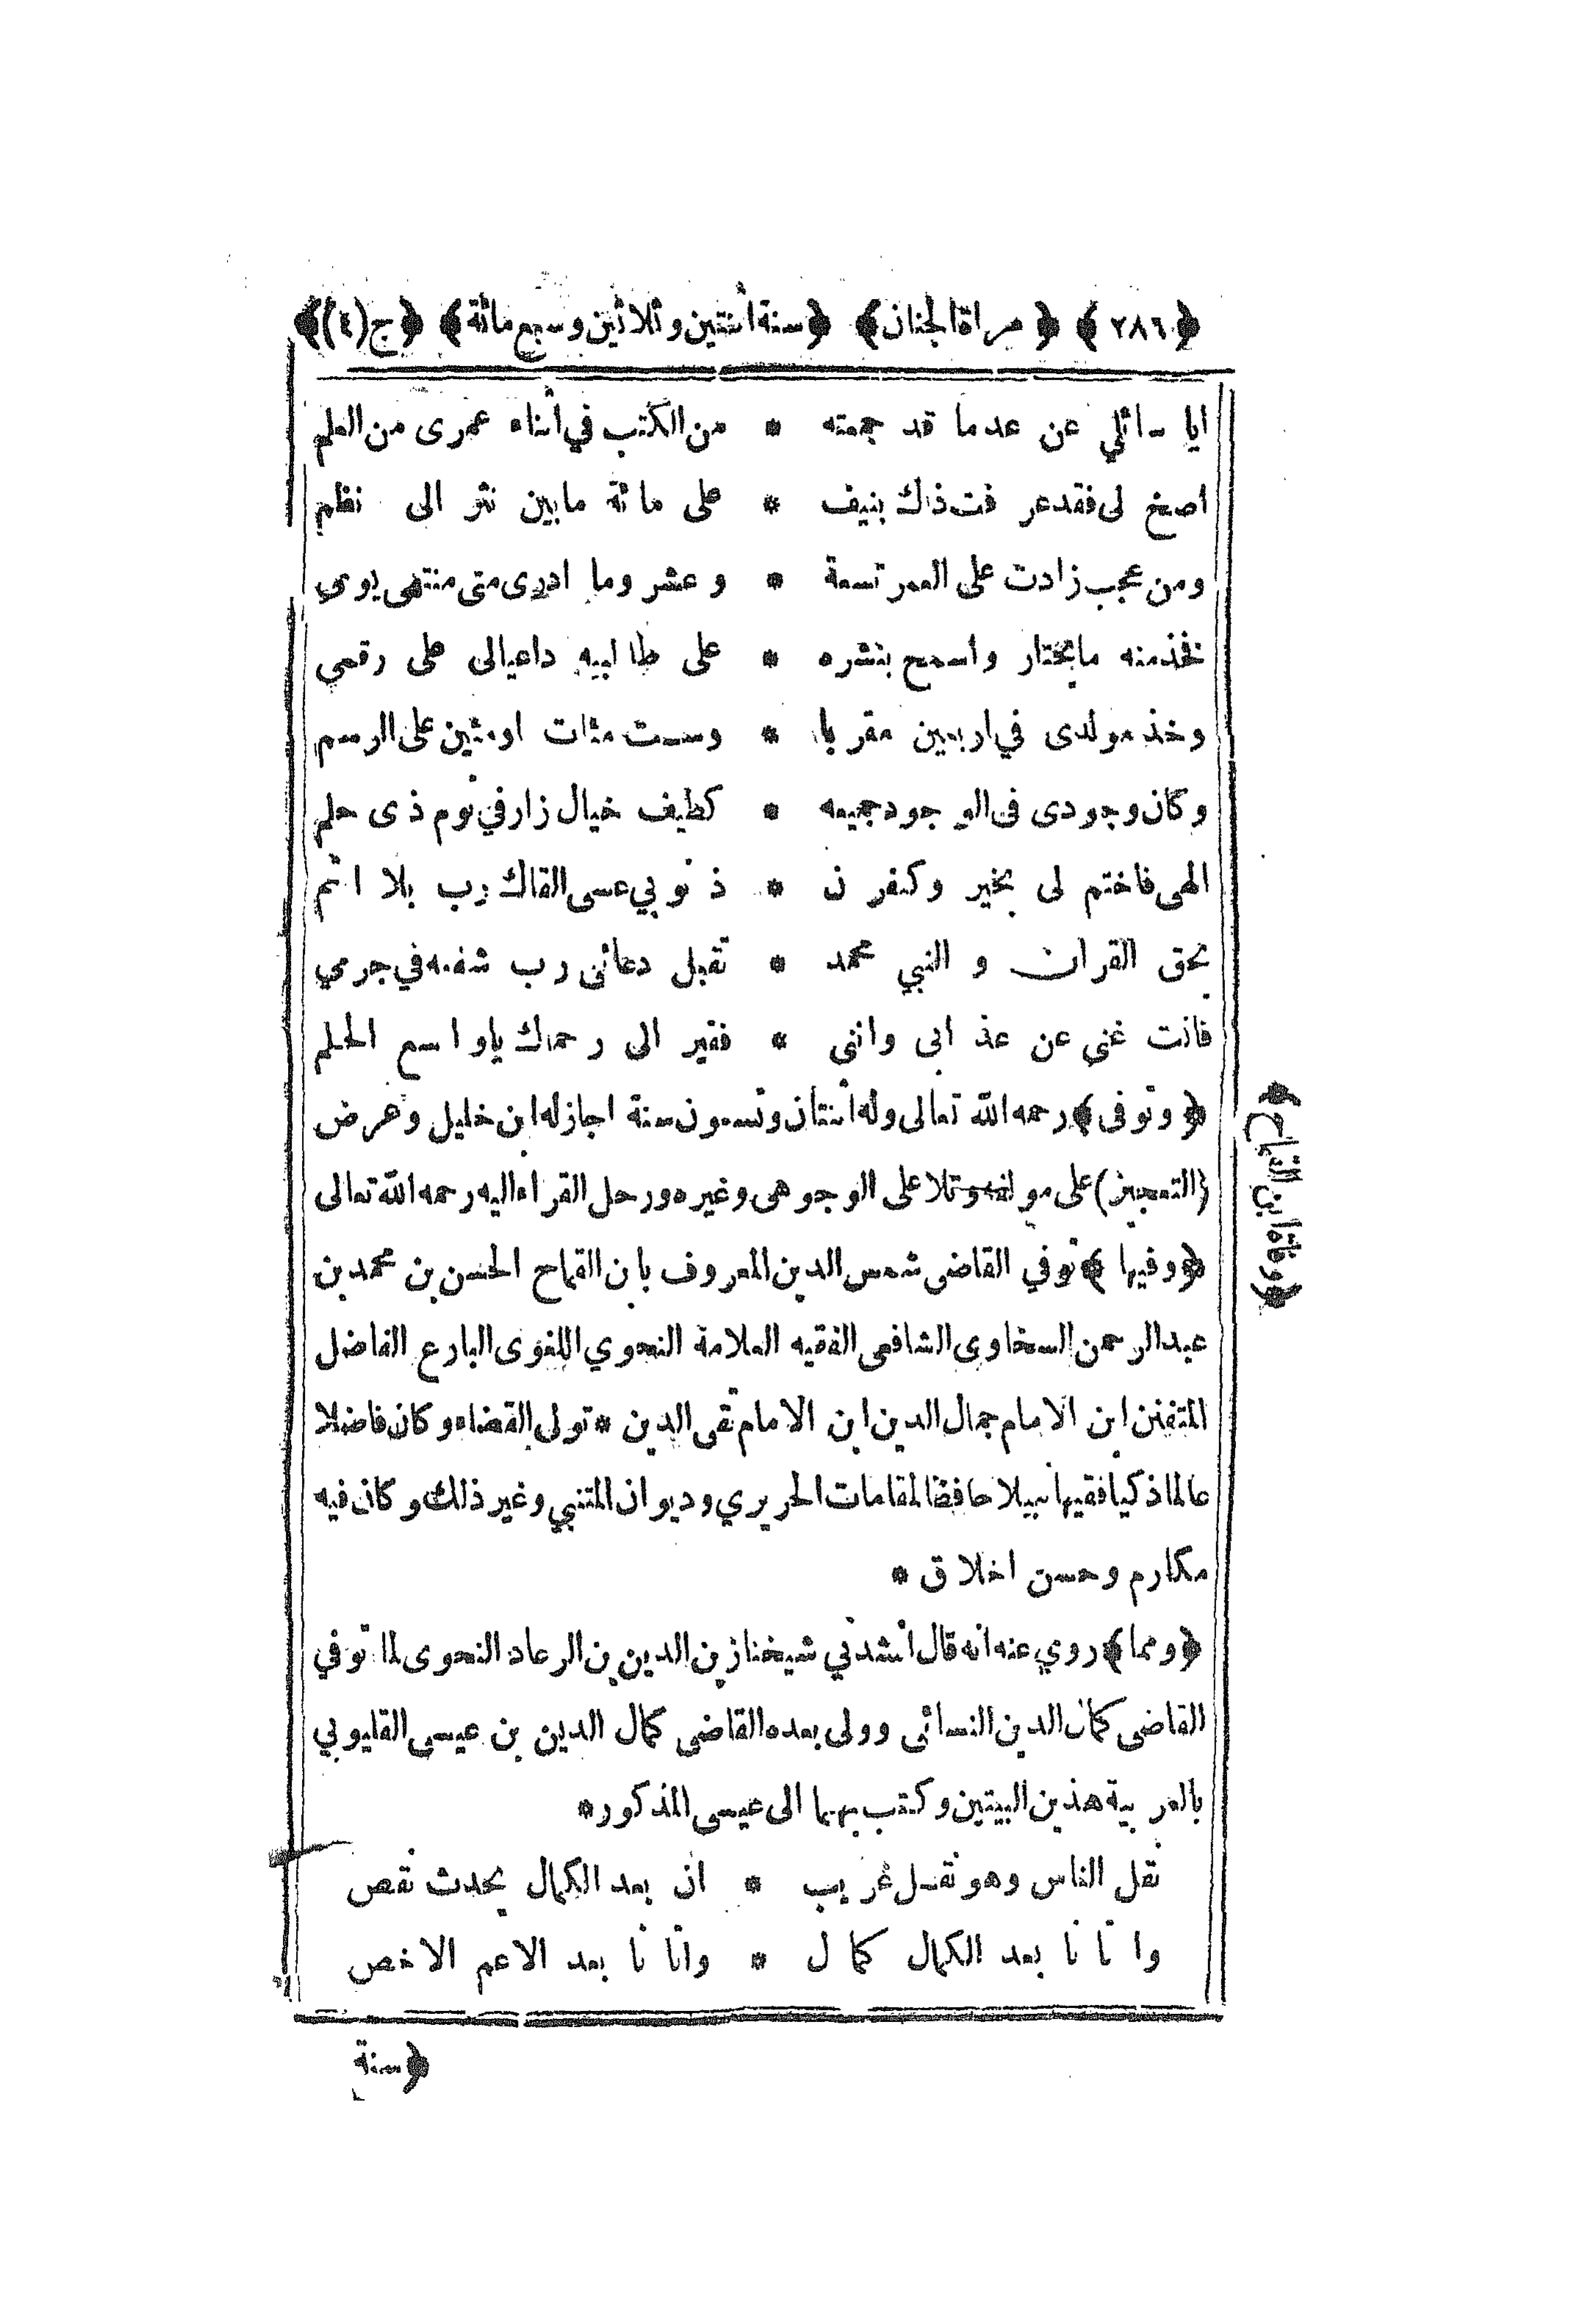 ﴿٢٨٦﴾ ﴿مراة الجنان﴾ ﴿سنة اثنتين وثلاثين وسبع مائة﴾ ﴿ج (٤)﴾
ايا سائلي عن عد ما قد جمعته * من الكتب في أثناء عمرى من العلم
اصخ لى فقد عرفت ذاك بنيف * على مائة مابين نثر الى نظم
ومن عجب زادت على العمر تسعة * وعشر وما ادرى متى منتهى يومي
فخذ منه ما يختار واسمح بنشره * على طالبيه داعيا لى على رقمي
وخذ مولدى في اربعين مقربا * وست مئات او مئين على الرسم
وكان وجودى فى الوجود جميعه * كطيف خيال زار في نوم ذى حلم
الهى فاختم لى بخير وكفرن * ذنوبي عسى القاك رب بلا اثم
بحق القران و النبي محمد * تقبل دعائى رب شفعه في جرمي
فانت غني عن عذابى وانني * فقير الى رحماك ياواسع الحلم
﴿وتوفى﴾ رحمه الله تعالى وله اثنتان وتسعون سنة اجازله ابن خليل وعرض
(التعجيز) على مولفه وتلا على الوجوهى وغيره ورحل القراء اليه رحمه الله تعالى
﴿وفيها﴾ توفي القاضى شمس الدين المعروف بابن القماح الحسن بن محمد بن
عبد الرحمن السخاوى الشافعى الفقيه العلامة النحوي اللغوى البارع الفاضل
المتفنن ابن الامام جمال الدين ابن الامام تقى الدين * تولى القضاء وكان فاضلا
عالما ذكيا فقيها نبيلا حافظا لمقامات الحريري وديوان المتنبي وغير ذلك وكان فيه
مكارم وحسن اخلاق *
﴿ومما﴾ روي عنه انه قال أنشدني شيخنا زين الدين بن الرعاد النحوى لما توفي
القاضى كمال الدين النسائى وولى بعده القاضى كمال الدين بن عيسى القليوبي
بالعربية هذين البيتين وكتب بهما الى عيسى المذكور *
نقل الناس وهو نقل غريب * ان بعد الكمال يحدث نقص
واتانا بعد الكمال كمال * واتانا بعد الاعم الاخص
﴿سنة
﴿وفاة ابن القماح﴾